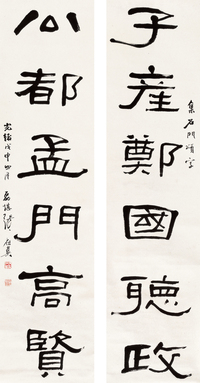 集石門頌字
子產鄭國聽政
公都孟門高賢
光緒戊申四月